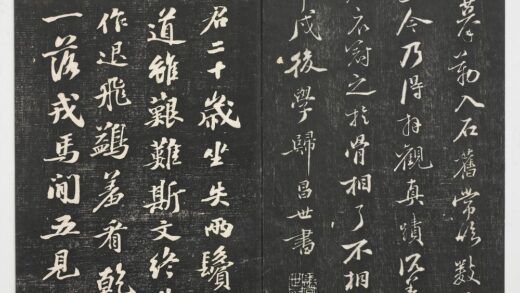 摹勒入石舊常數
今乃得拜觀真蹟況
衣冠之於骨相了不相
戌後學歸昌世書
君二十歲坐失兩鬢
道雖艱難斯文終
作退飛鷁羞看乾
一落戎馬間五見